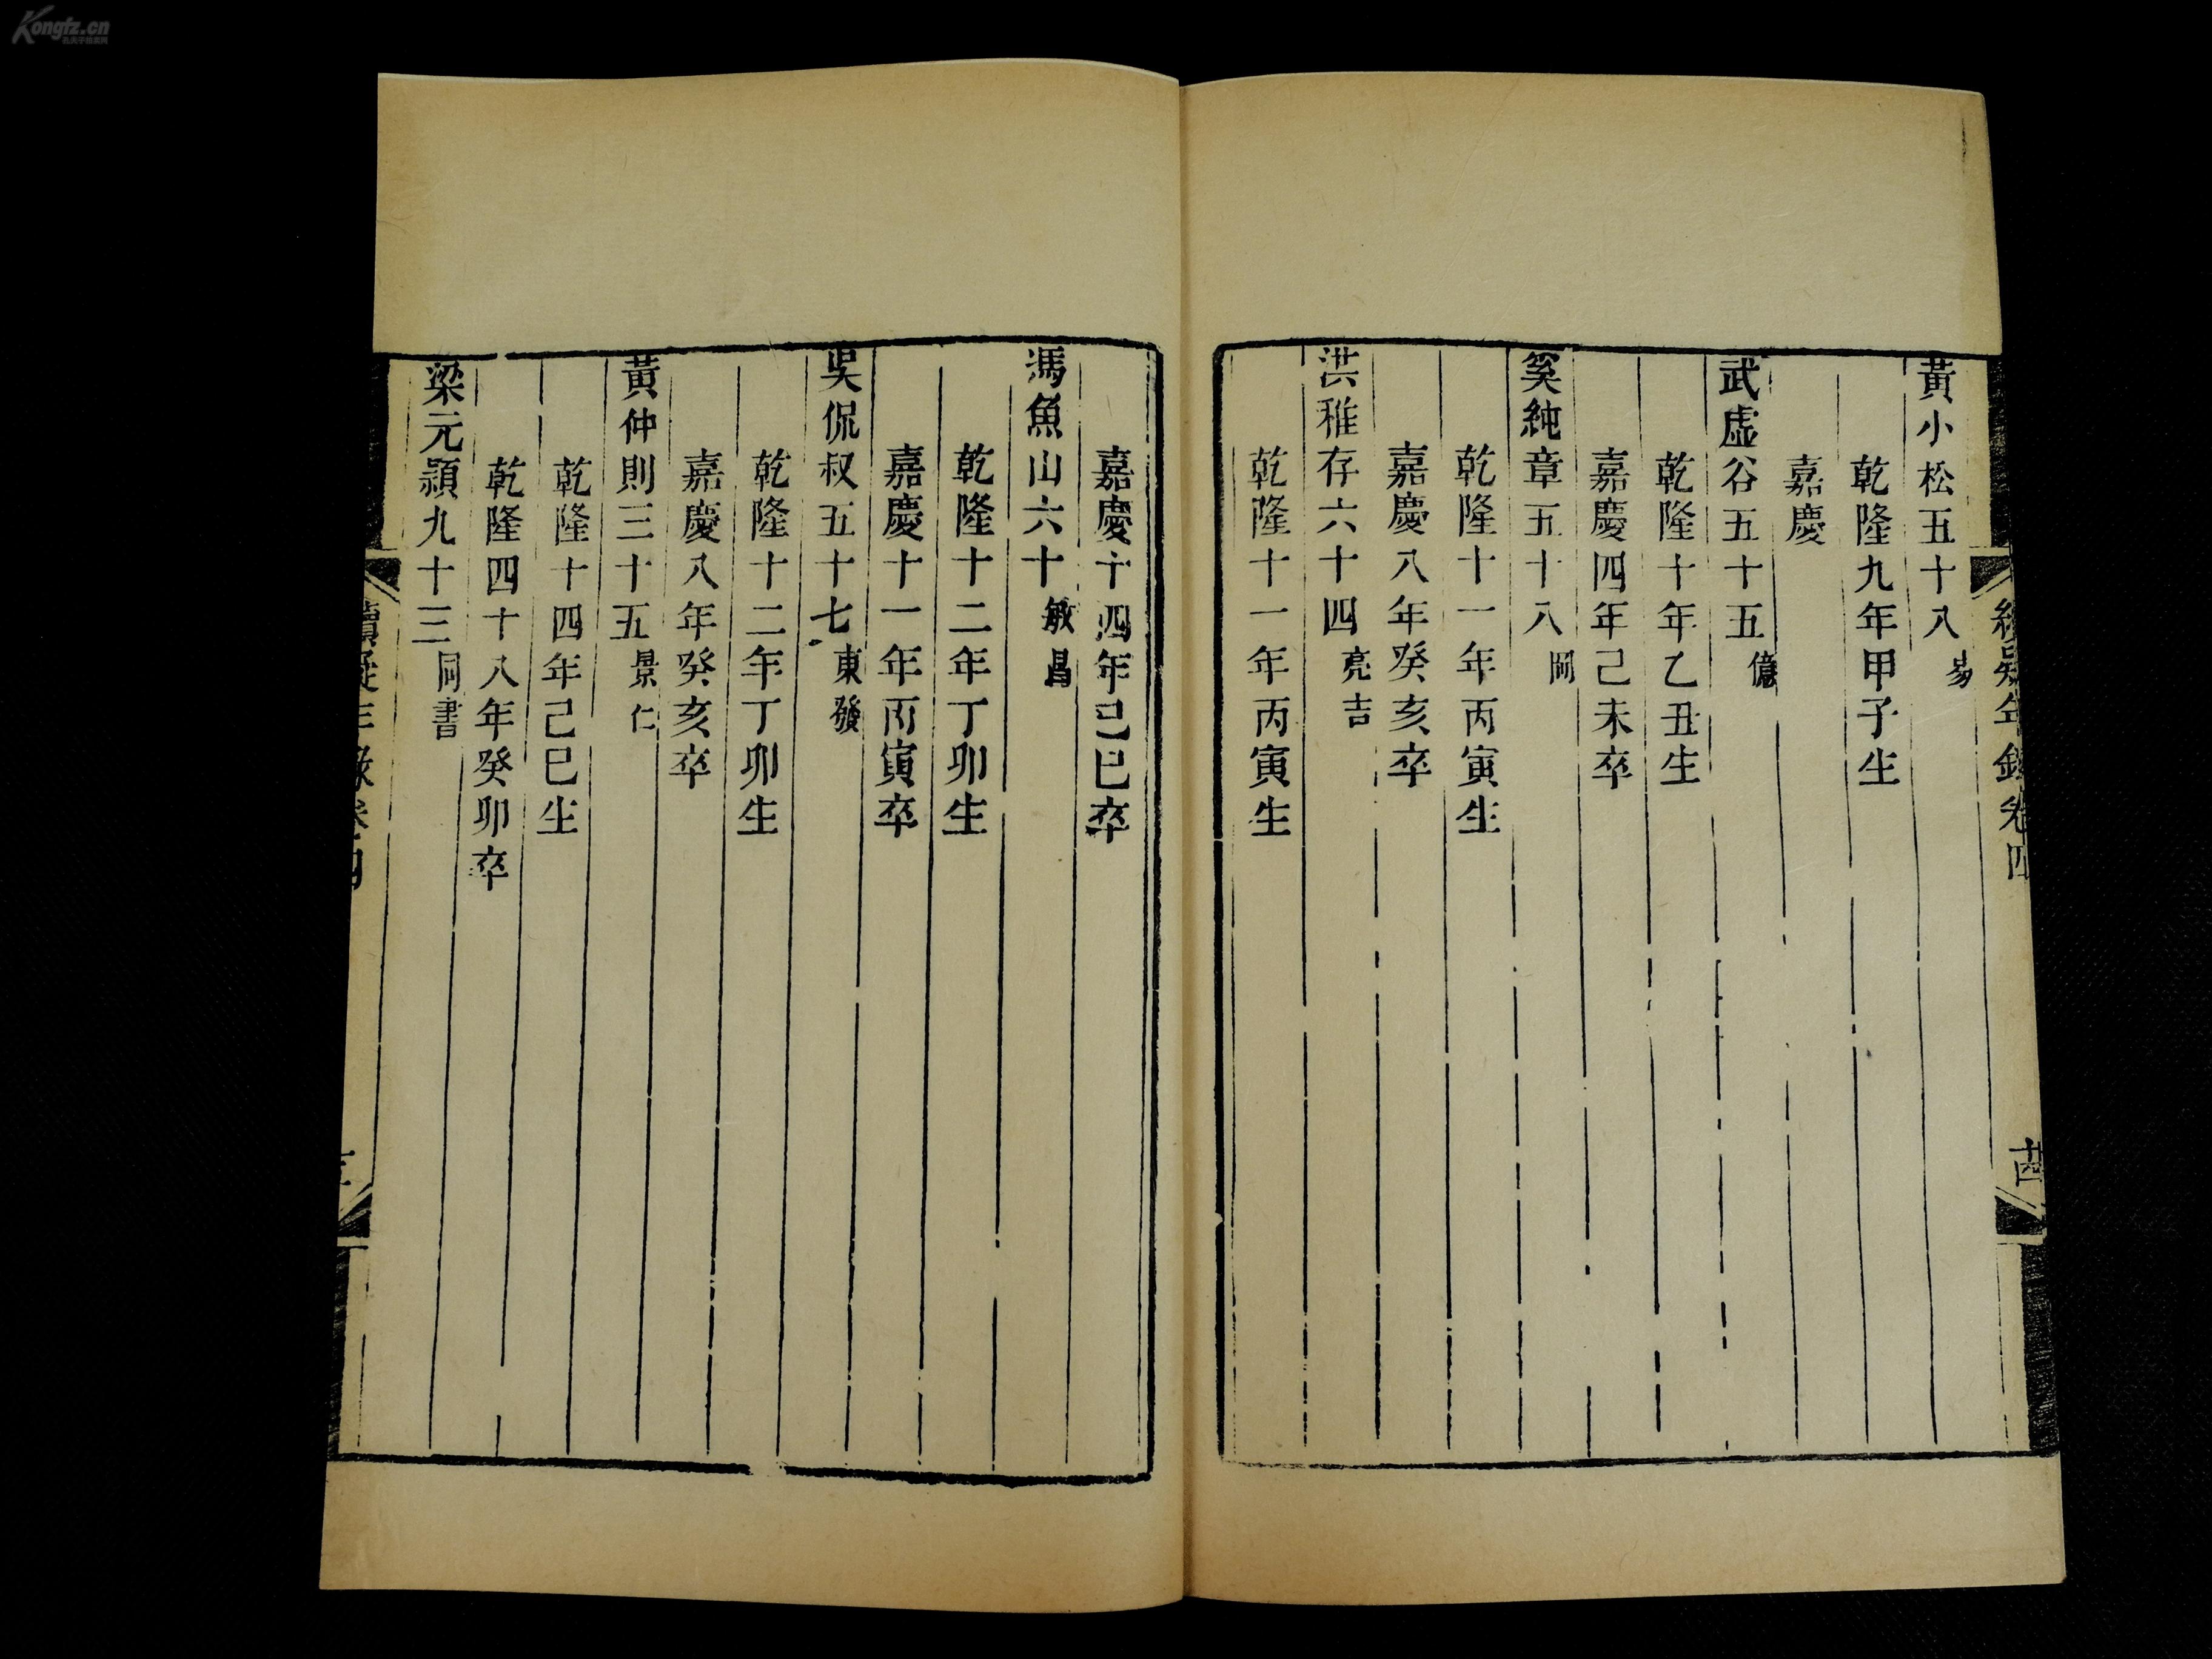 Kongfz.cn
孔夫子旧书网
續疑年錄卷四
黃小松五十八 易
乾隆九年甲子生
嘉慶
武虛谷五十五 億
乾隆十年乙丑生
嘉慶四年己未卒
奚純章五十八 岡
乾隆十一年丙寅生
嘉慶八年癸亥卒
洪稚存六十四 亮吉
乾隆十一年丙寅生
嘉慶十四年己巳卒
馮魚山六十 敏昌
乾隆十二年丁卯生
嘉慶十一年丙寅卒
吳侃叔五十七 東發
乾隆十二年丁卯生
嘉慶八年癸亥卒
黃仲則三十五 景仁
乾隆十四年己巳生
乾隆四十八年癸卯卒
梁元穎九十三 同書
續疑年錄卷四